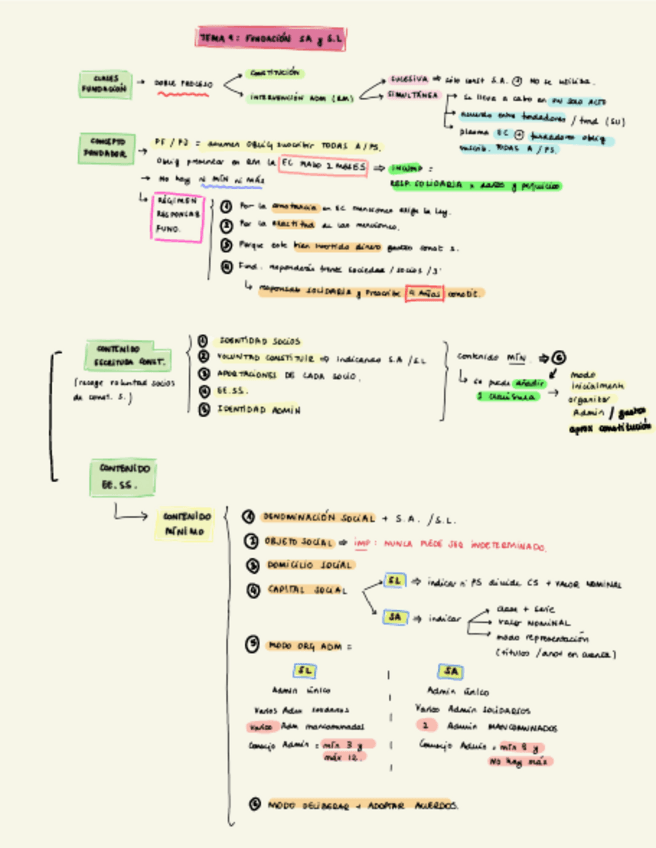 TEMA 9: FUNDACIÓN SA y S.L
CLASES FUNDACIÓN → DOBLE PROCESO
CONSTITUCIÓN
INTERVENCIÓN ADM (RM)
SUCESIVA ⇒ sólo const S.A. No se utiliza.
SIMULTÁNEA
Se lleva a cabo en UN SOLO ACTO
acuerdo entre fundadores / fund (SU)
plasma EC + fundadores oblig
suscrib. TODAS A/PS.
CONCEPTO FUNDADOR
PF / PJ = asumen OBLIG suscribir TODAS A/PS.
Oblig presentar en RM la EC MAXO 2 MESES ⇒ INCUMP =
RESP. SOLIDARIA x daños y perjuicios
→ No hay ni MÍN ni MÁX
RÉGIMEN
RESPONSAB
FUND.
① Por la constancia en EC menciones exige la ley.
② Por la exactitud de las menciones.
③ Porque esté bien invertido dinero gastos const s.
④ Fund. responderán frente sociedad / socios / 3º
↳ responsab SOLIDARIA y Prescribe 4 Años constit.
CONTENIDO
ESCRITURA CONST.
(recoge voluntad socios
de const. S.)
① IDENTIDAD SOCIOS
② VOLUNTAD CONSTITUIR ⇒ Indicando S.A /S.L
③ APORTACIONES DE CADA SOCIO.
④ EE.SS.
⑤ IDENTIDAD ADMIN
contenido MÍN ⇒ ⑥
↳ se puede añadir
1 cláusula →
modo
inicialmente
organizar
Admin / gastos
aprox constitución
CONTENIDO
EE.SS.
CONTENIDO
MÍNIMO
① DENOMINACIÓN SOCIAL + S.A. /S.L.
② OBJETO SOCIAL ⇒ IMP: NUNCA PUEDE SER INDETERMINADO.
③ DOMICILIO SOCIAL
④ CAPITAL SOCIAL
SL ⇒ indicar nº PS divide CS + VALOR NOMINAL
SA ⇒ indicar
clase + serie
valor NOMINAL
modo representación
(títulos /anot en cuenta)
⑤ MODO ORG ADM =
SL
Admin único
Varios Adm solidarios
varios Adm mancomunados
Consejo Admin = mín 3 y
máx 12.
SA
Admin único
Varios Admin SOLIDARIOS
2 Admin MANCOMUNADOS
Consejo Admin = mín 3 y
No hay máx
⑥ MODO DELIBERAR + ADOPTAR ACUERDOS.